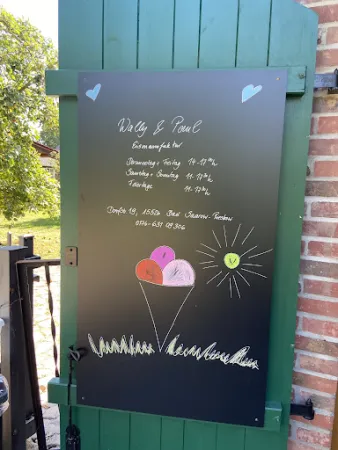 Wally & Paul
Eismanufaktur
Donnerstag + Freitag 14-17
Samstag + Sonntag 11-17
Feiertage 11-17
Dorfstr 19, 15526 Bad Saarow-Petersdorf